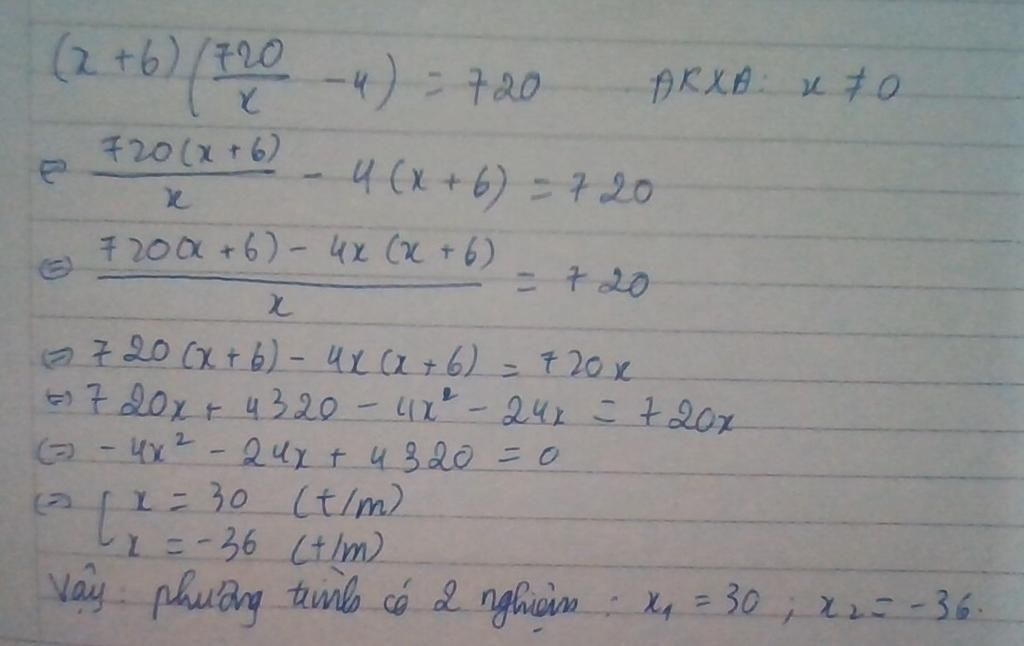 (x + 6) (720/x - 4) = 720 ĐKXĐ: x ≠ 0
⇔ 720(x + 6)/x - 4(x + 6) = 720
⇔ (720(x + 6) - 4x(x + 6))/x = 720
⇔ 720(x + 6) - 4x(x + 6) = 720x
⇔ 720x + 4320 - 4x² - 24x = 720x
⇔ -4x² - 24x + 4320 = 0
⇔ [ x = 30 (t/m)
x = -36 (t/m)
Vậy: phương trình có 2 nghiệm: x₁ = 30; x₂ = -36.